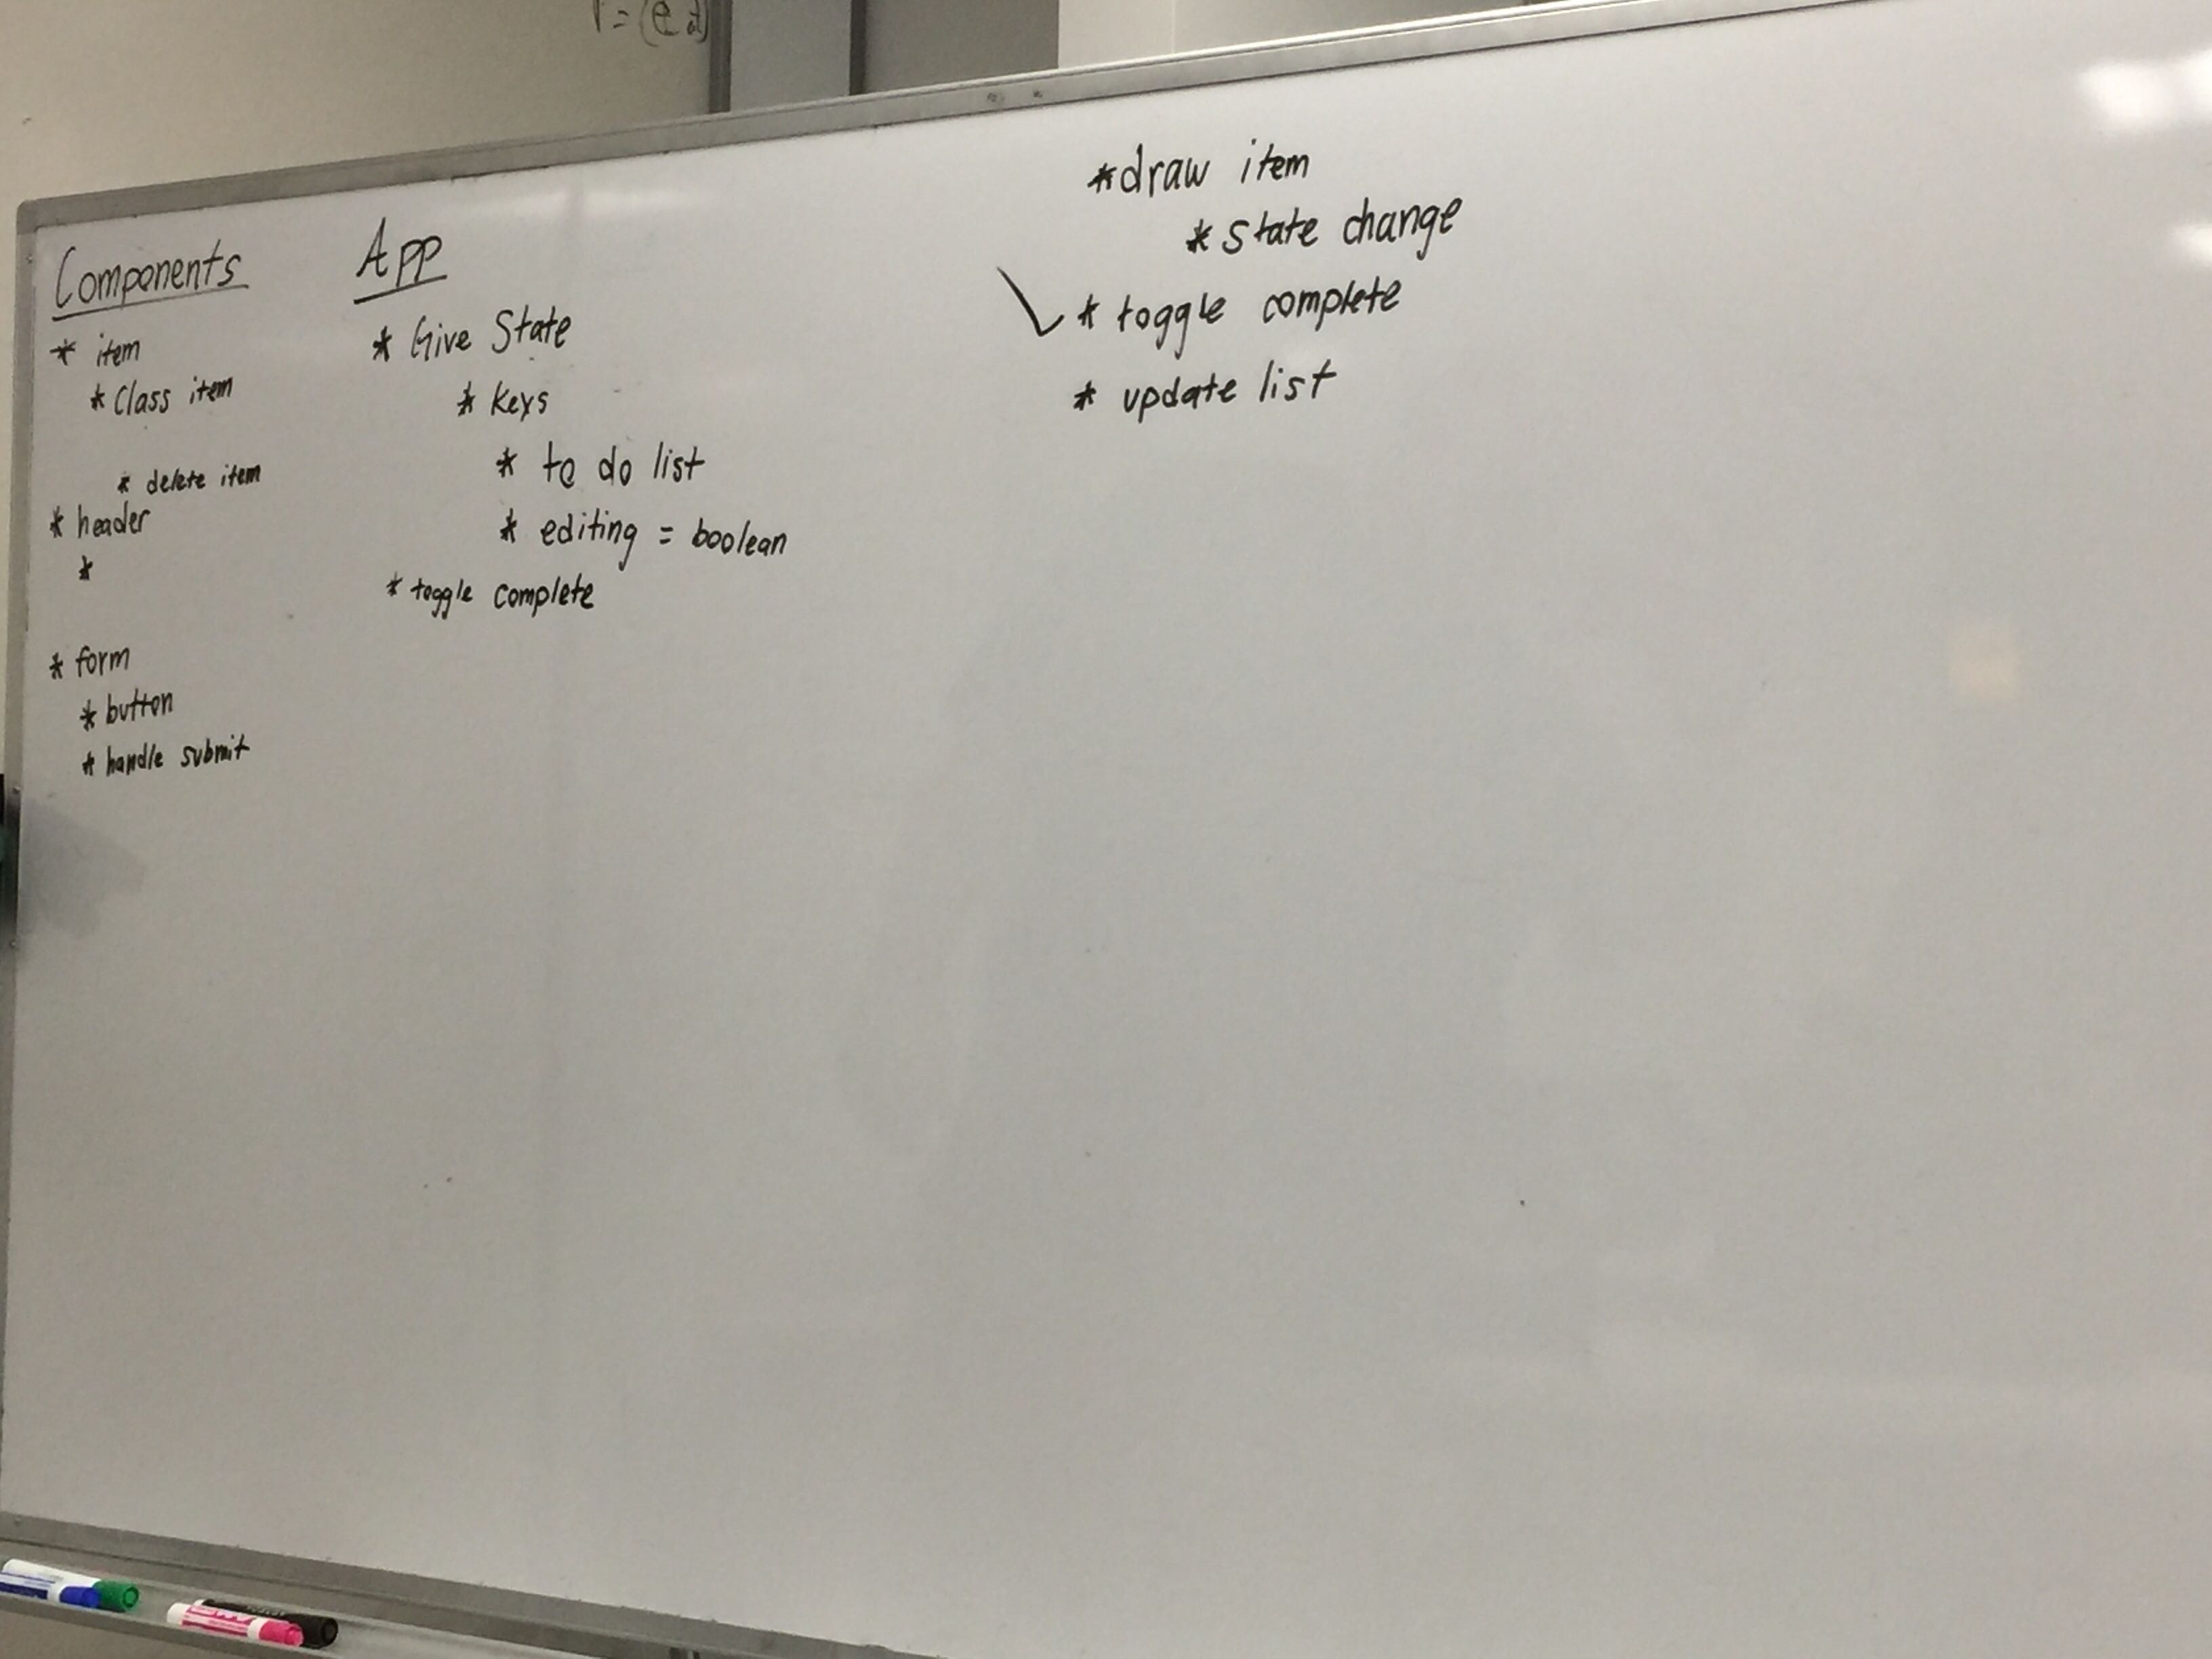 Components
* item
* Class item
* delete item
* header
*
* form
* button
* handle submit
App
* Give State
* keys
* to do list
* editing = boolean
* toggle complete
* draw item
* State change
* toggle complete
* update list